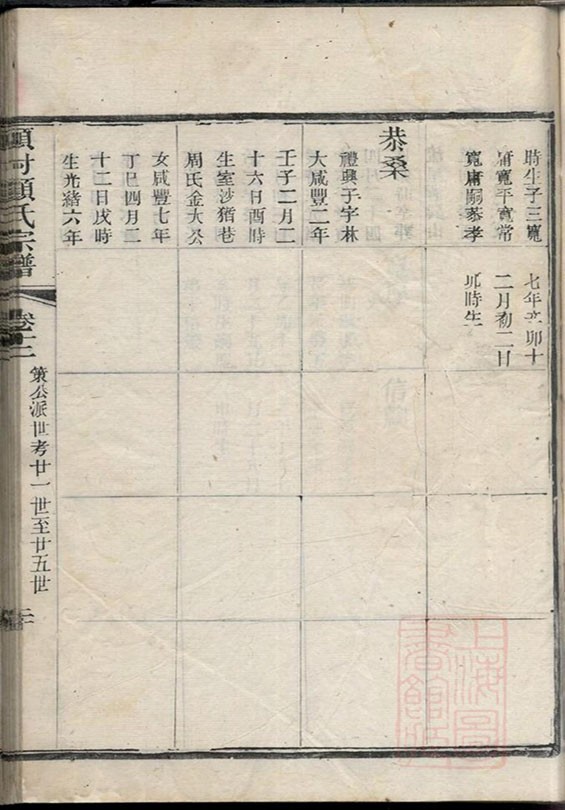 時生子三寬
庸寬平寬常
寬庸嗣恭孝
七年辛卯十
二月初二日
卯時生
恭桑
禮興子字林
大咸豐二年
壬子二月二
十六日酉時
生室沙猶巷
周氏金大公
女咸豐七年
丁巳四月二
十二日戌時
生光緒六年
顧氏宗譜
卷十二
策公派世考廿一世至廿五世
上海圖書館藏